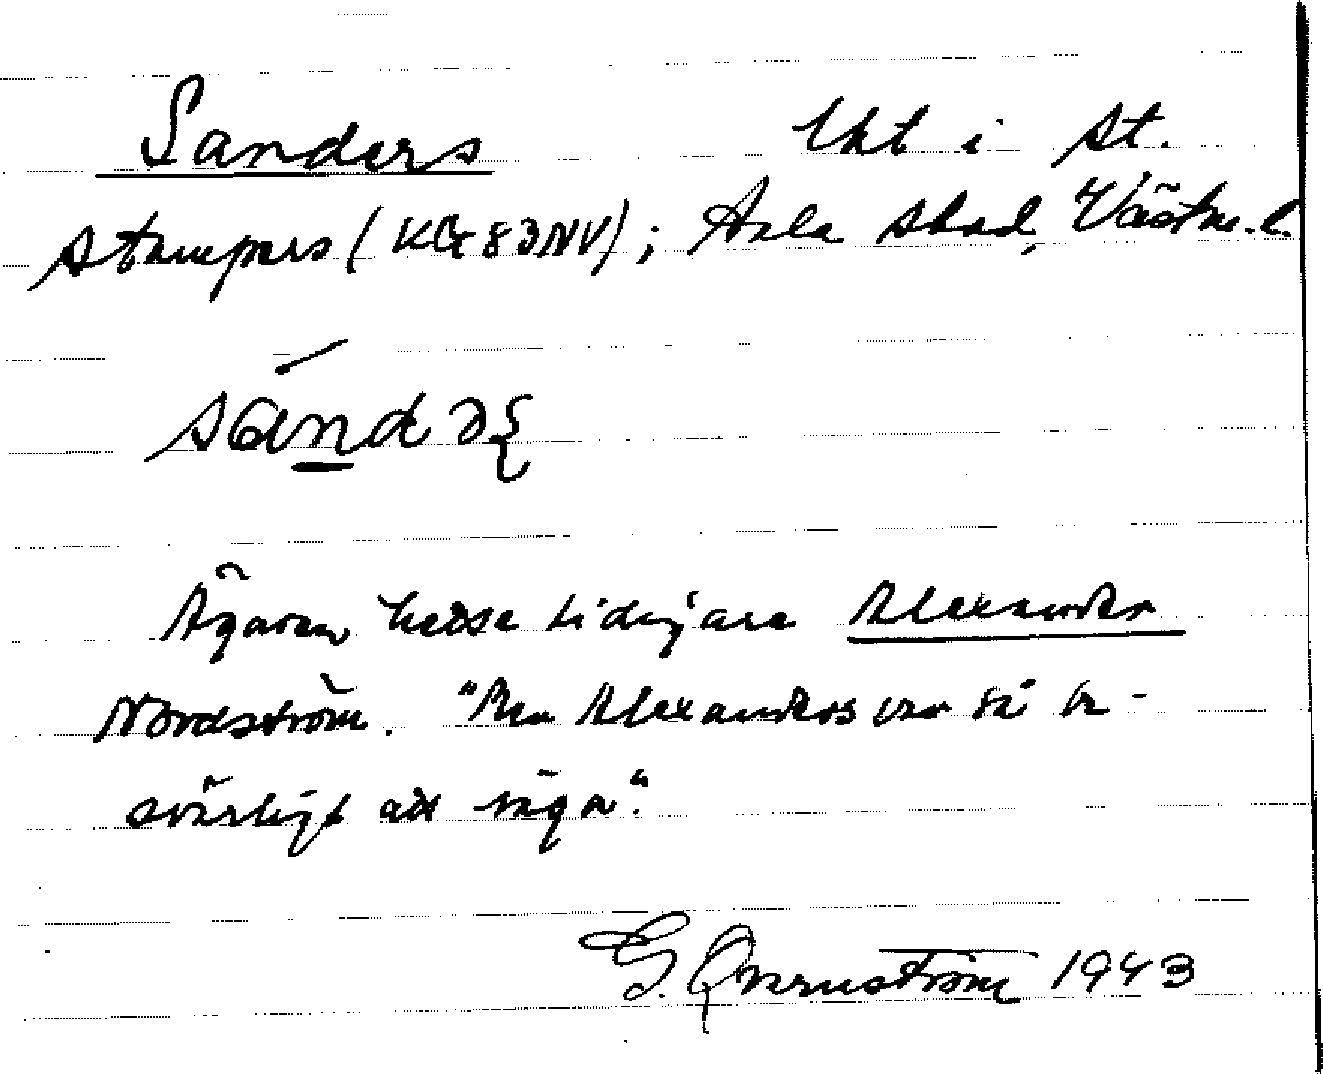 Sanders Lht i St.
Stampers (KG 83NV); Sala stad, Västm. l.
sandəʂ
Ägaren hette tidigare Alexander
Nordström. "Men Alexanders var så be-
svärligt att säga".
G. Qvarnström 1943